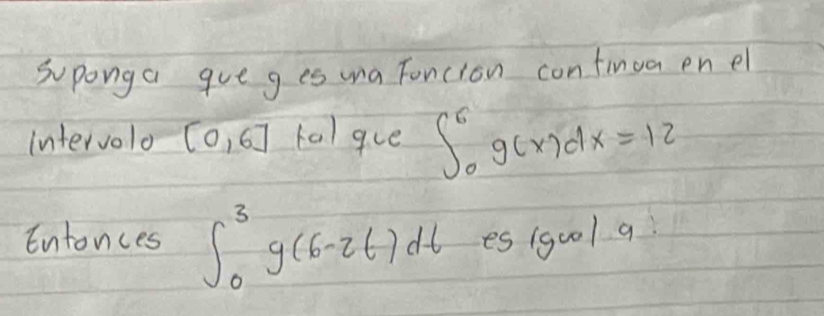 Suponga que g es una Función continua en el
intervalo [0,6] tal que ∫₀⁶ g(x)dx = 12
Entonces ∫₀³ g(6-2t)dt es igual a: